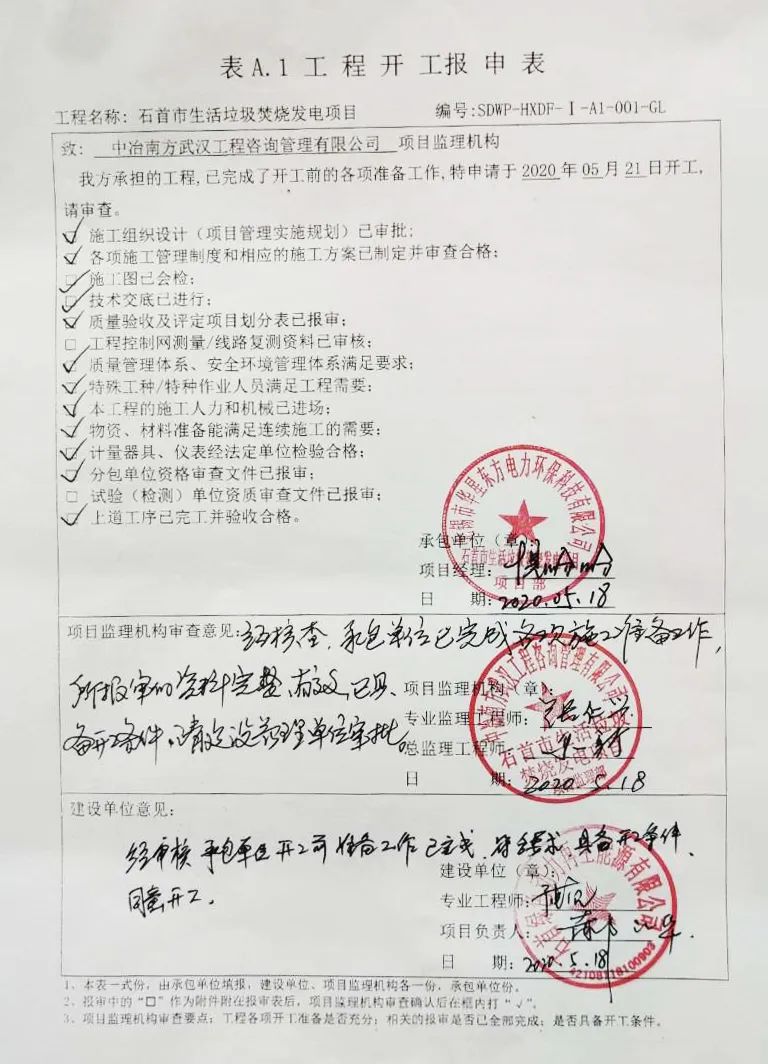 表A.1 工程开工报申表
工程名称：石首市生活垃圾焚烧发电项目 编号:SDWP-HXDF-Ⅰ-A1-001-GL
致： 中冶南方武汉工程咨询管理有限公司 项目监理机构
我方承担的工程,已完成了开工前的各项准备工作,特申请于2020年05月21日开工,
请审查。
☑ 施工组织设计（项目管理实施规划）已审批;
☑ 各项施工管理制度和相应的施工方案已制定并审查合格;
☑ 施工图已会检;
☑ 技术交底已进行;
☑ 质量验收及评定项目划分表已报审;
□ 工程控制网测量/线路复测资料已审核;
☑ 质量管理体系、安全环境管理体系满足要求;
☑ 特殊工种/特种作业人员满足工程需要;
☑ 本工程的施工人力和机械已进场;
☑ 物资、材料准备能满足连续施工的需要;
☑ 计量器具、仪表经法定单位检验合格;
☑ 分包单位资格审查文件已报审;
□ 试验（检测）单位资质审查文件已报审;
☑ 上道工序已完工并验收合格。
市华星东方电力环保科技有限公司
石首市生活垃圾焚烧发电项目
项目部
承包单位（章
项目经理:
日 期:2020.05.18
项目监理机构审查意见:经核查，承包单位已完成各项施工准备工作，
所报审的资料完整、有效，已具
项目监理机构（章）:
备开工条件，请建设管理单位审批。
专业监理工程师:
总监理工程师
日 期:2020.5.18
武汉工程咨询管理有限公司
石首市生活垃圾
焚烧发电项目
建设单位意见:
经审核 承包单位开工前准备工作已完成，符合要求，具备开工条件，
同意开工。
建设单位（章）:
专业工程师:
项目负责人:
日 期:2020.5.18
再生能源有限公司
42108118100903
1、本表一式份，由承包单位填报，建设单位、项目监理机构各一份，承包单位份。
2、报审中的“□”作为附件附在报审表后，项目监理机构审查确认后在框内打“√”。
3、项目监理机构审查要点：工程各项开工准备是否充分；相关的报审是否已全部完成；是否具备开工条件。